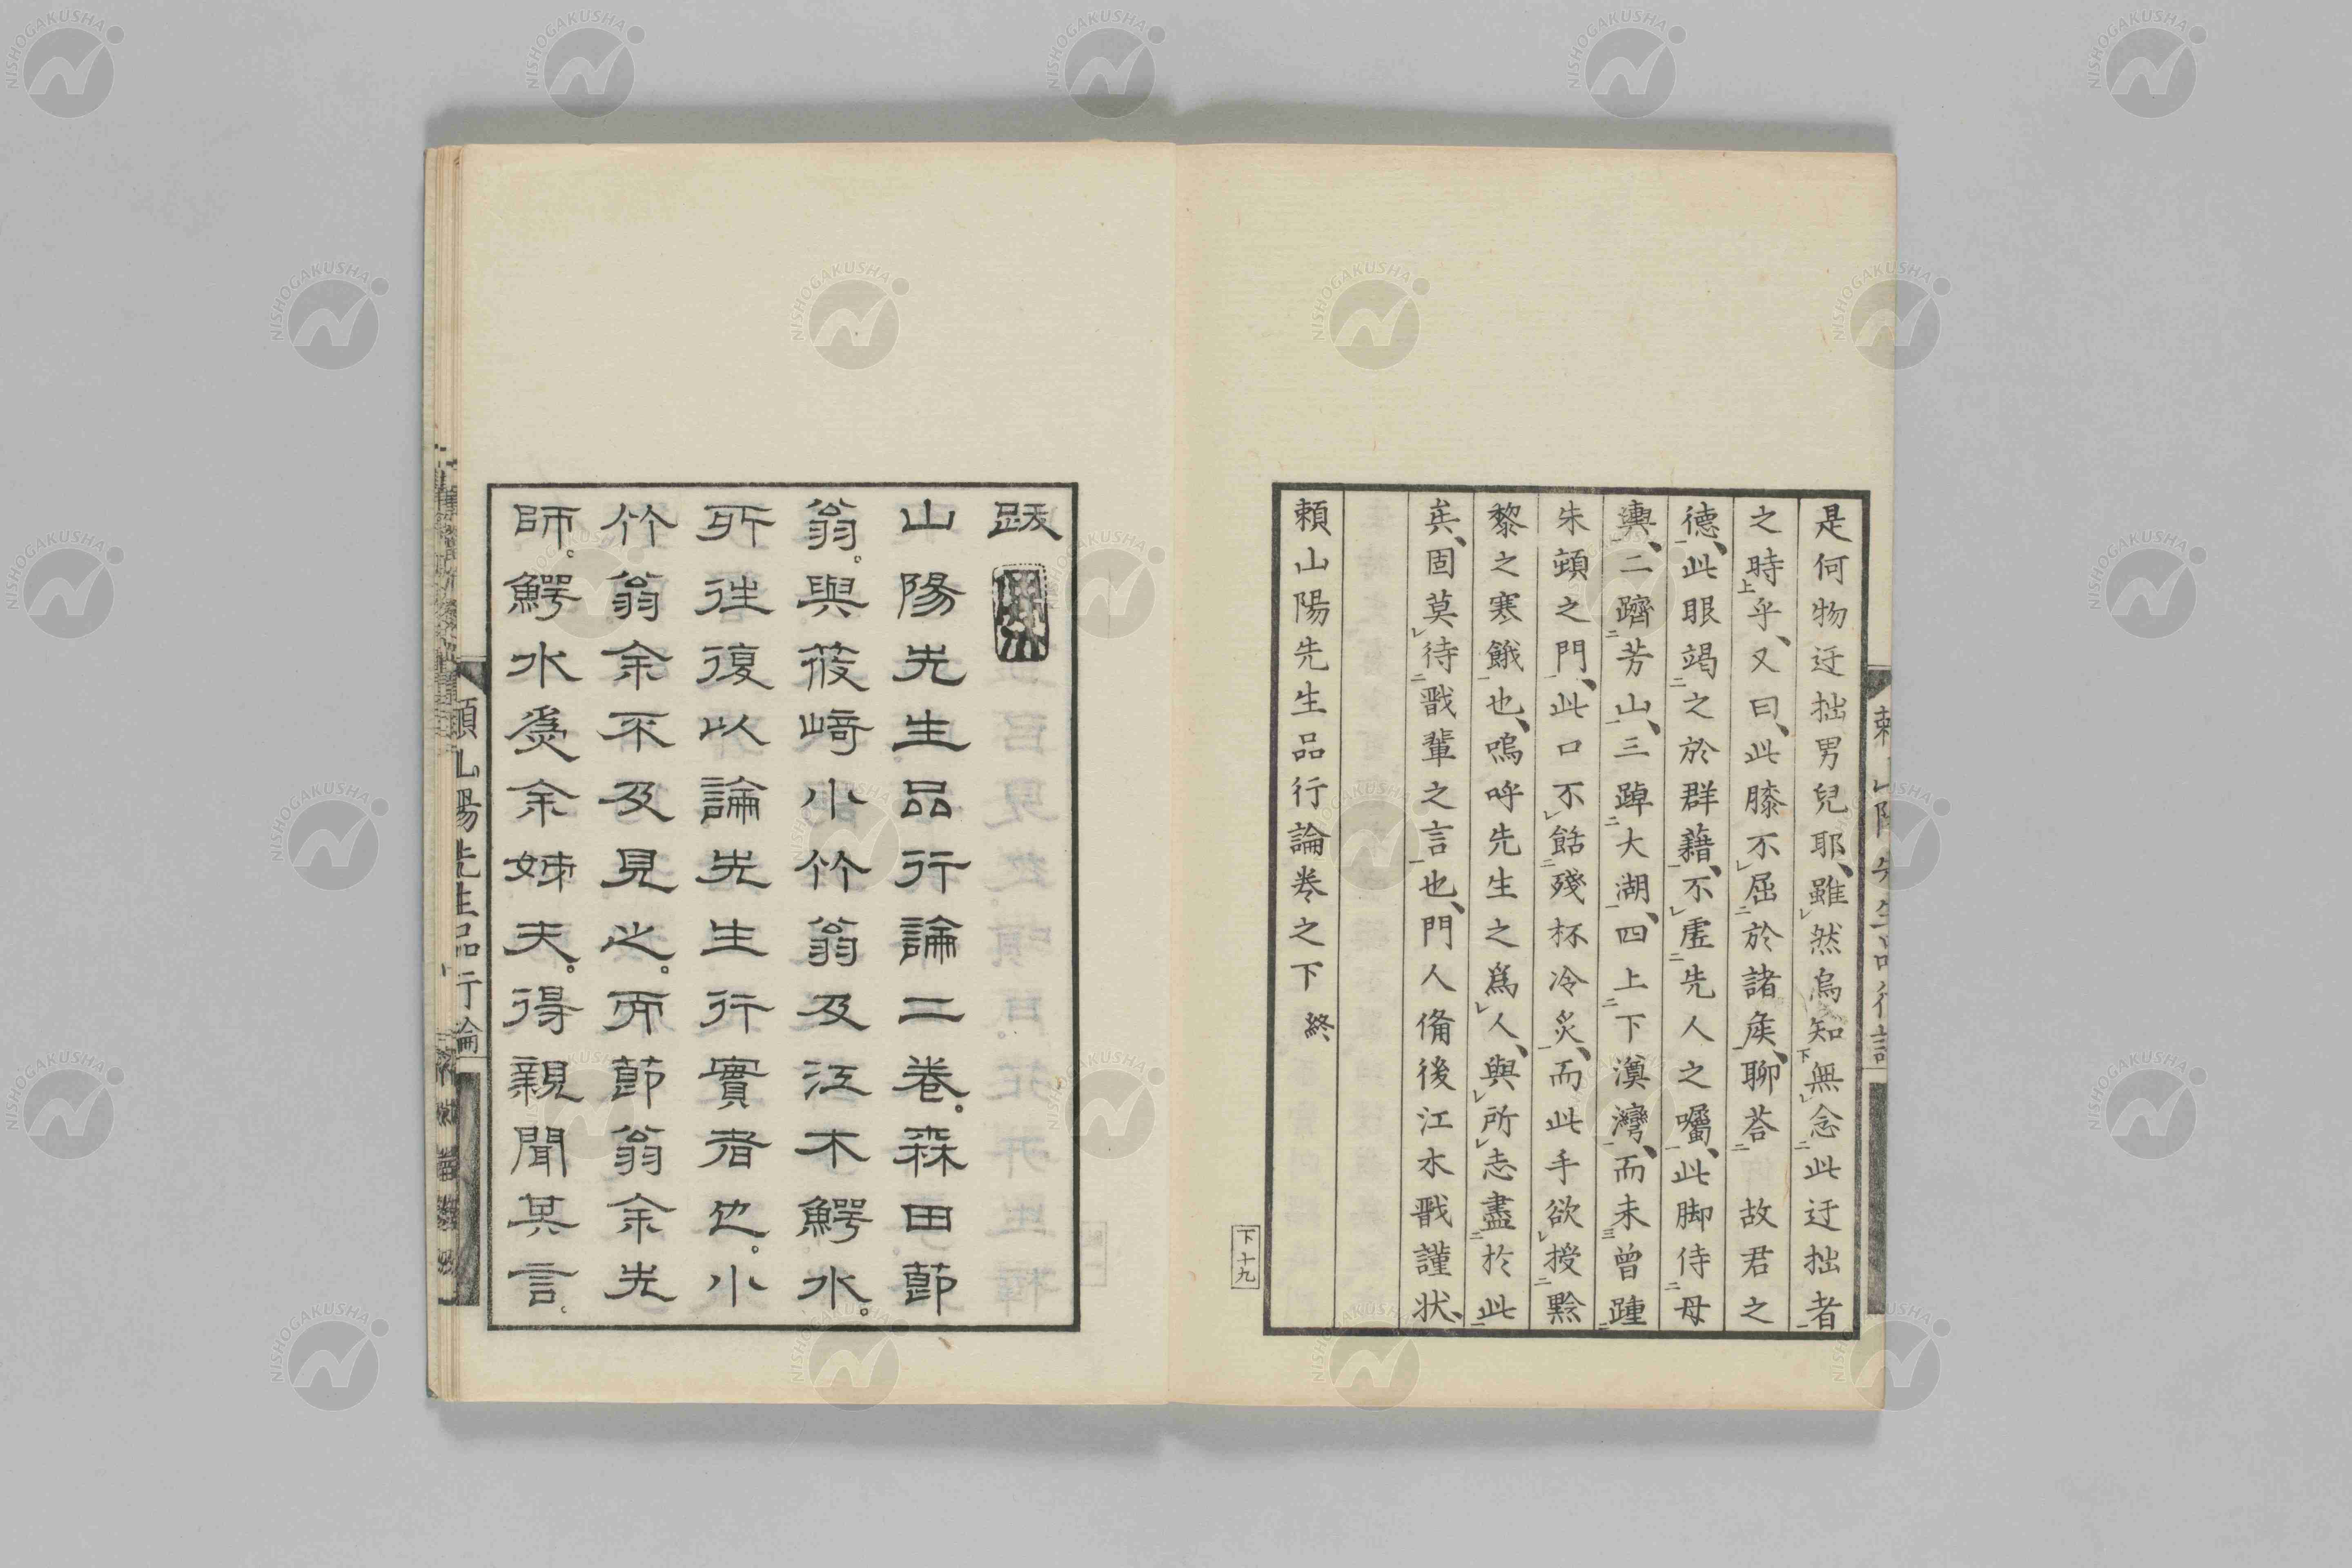 是何物迂拙男兒耶、雖㆑然烏知㆘無㆑念㆓此迂拙者㆒
之時㆖乎、又曰、此膝不㆑屈㆓於諸矦㆒、聊荅㆓故君之
德㆒、此眼竭㆓之於群藉㆒、不㆑虛㆓先人之囑㆒、此脚侍㆓母
輿㆒、二躋㆓芳山㆒、三踔㆓大湖㆒、四上㆓下澳灣㆒、而未㆔曾踵㆓
朱頓之門㆒、此口不㆑餂㆓殘杯冷炙㆒、而此手欲㆑授㆓黔
黎之寒餓㆒也、嗚呼先生之爲㆑人、與㆑所㆑志盡㆓於此㆒
矣、固莫㆑待㆓戩輩之言㆒也、門人備後江木戩謹状、
賴山陽先生品行論卷之下 終
下十九
跋
山陽先生品行論二卷。森田節
翁。與筱崎小竹翁及江木鰐水。
所往復以論先生行實者也。小
竹翁余不及見之。而節翁余先
師。鰐水爲余姊夫。得親聞其言。
NISHOGAKUSHA